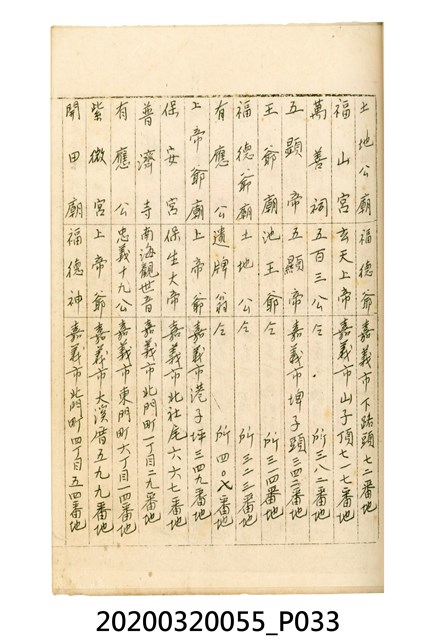 土地公廟 福德爺 嘉義市下路頭七二番地
福山宮 玄天上帝 嘉義市山子頂七一七番地
萬善祠 五百三公 仝 · 所三八二番地
五顯帝 五顯帝 嘉義市埤子頭三四二番地
王爺廟 池王爺 仝 所三一四番地
福德爺廟 土地公 仝 所三二三番地
有應公 遺牌翁 仝 所四〇七番地
上帝爺廟 上帝爺 嘉義市港子坪三四九番地
保安宮 保生大帝 嘉義市北社尾六六七番地
普濟寺 南海觀世音 嘉義市北門町一丁目二九番地
有應公 忠義十九公 嘉義市東門町六丁目一四番地
紫微宮 上帝爺 嘉義市大溪厝五九九番地
開田廟 福德神 嘉義市北門町四丁目五四番地
20200320055_P033